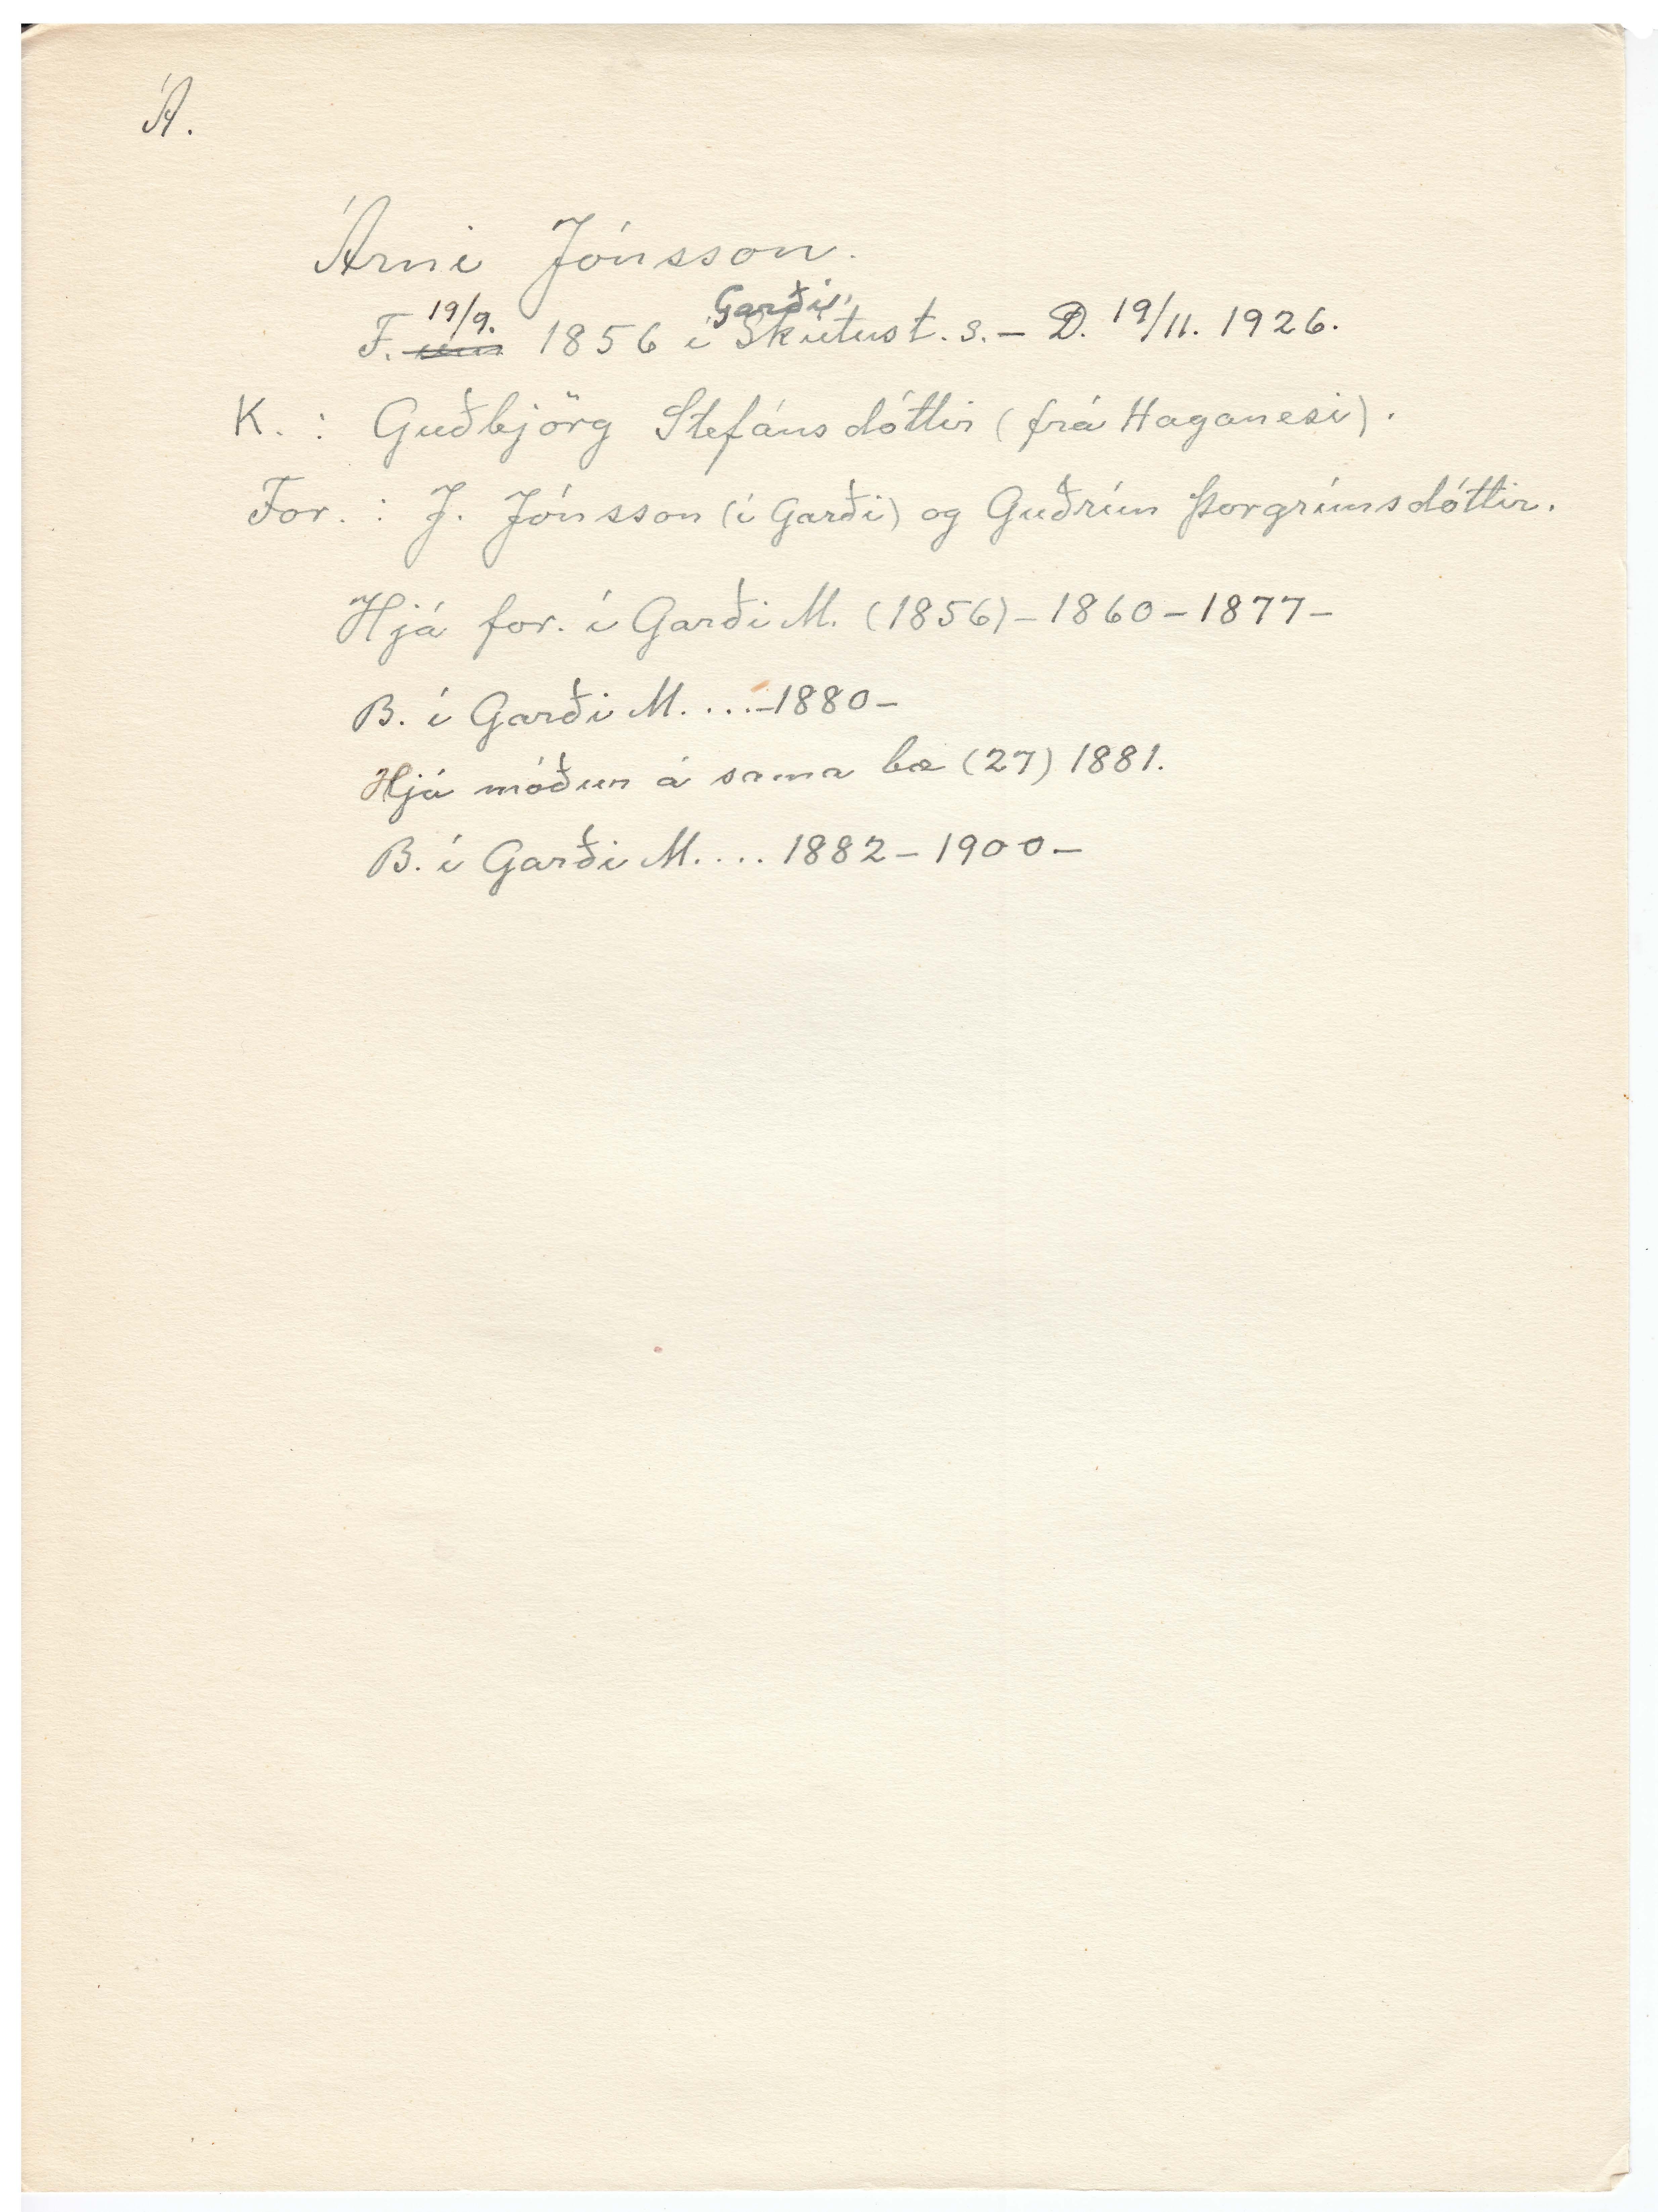 Á.
Árni Jónsson.
F. ~~um~~ 19/9. 1856 í Garði, Skútust. s. – D. 19/11. 1926.
K. : Guðbjörg Stefánsdóttir (frá Haganesi).
For. : J. Jónsson (í Garði) og Guðrún Þorgrímsdóttir.
Hjá for. í Garði M. (1856) – 1860 – 1877 –
B. í Garði M. . . . – 1880 –
Hjá móður á sama bæ (27) 1881.
B. í Garði M. . . . 1882 – 1900 –